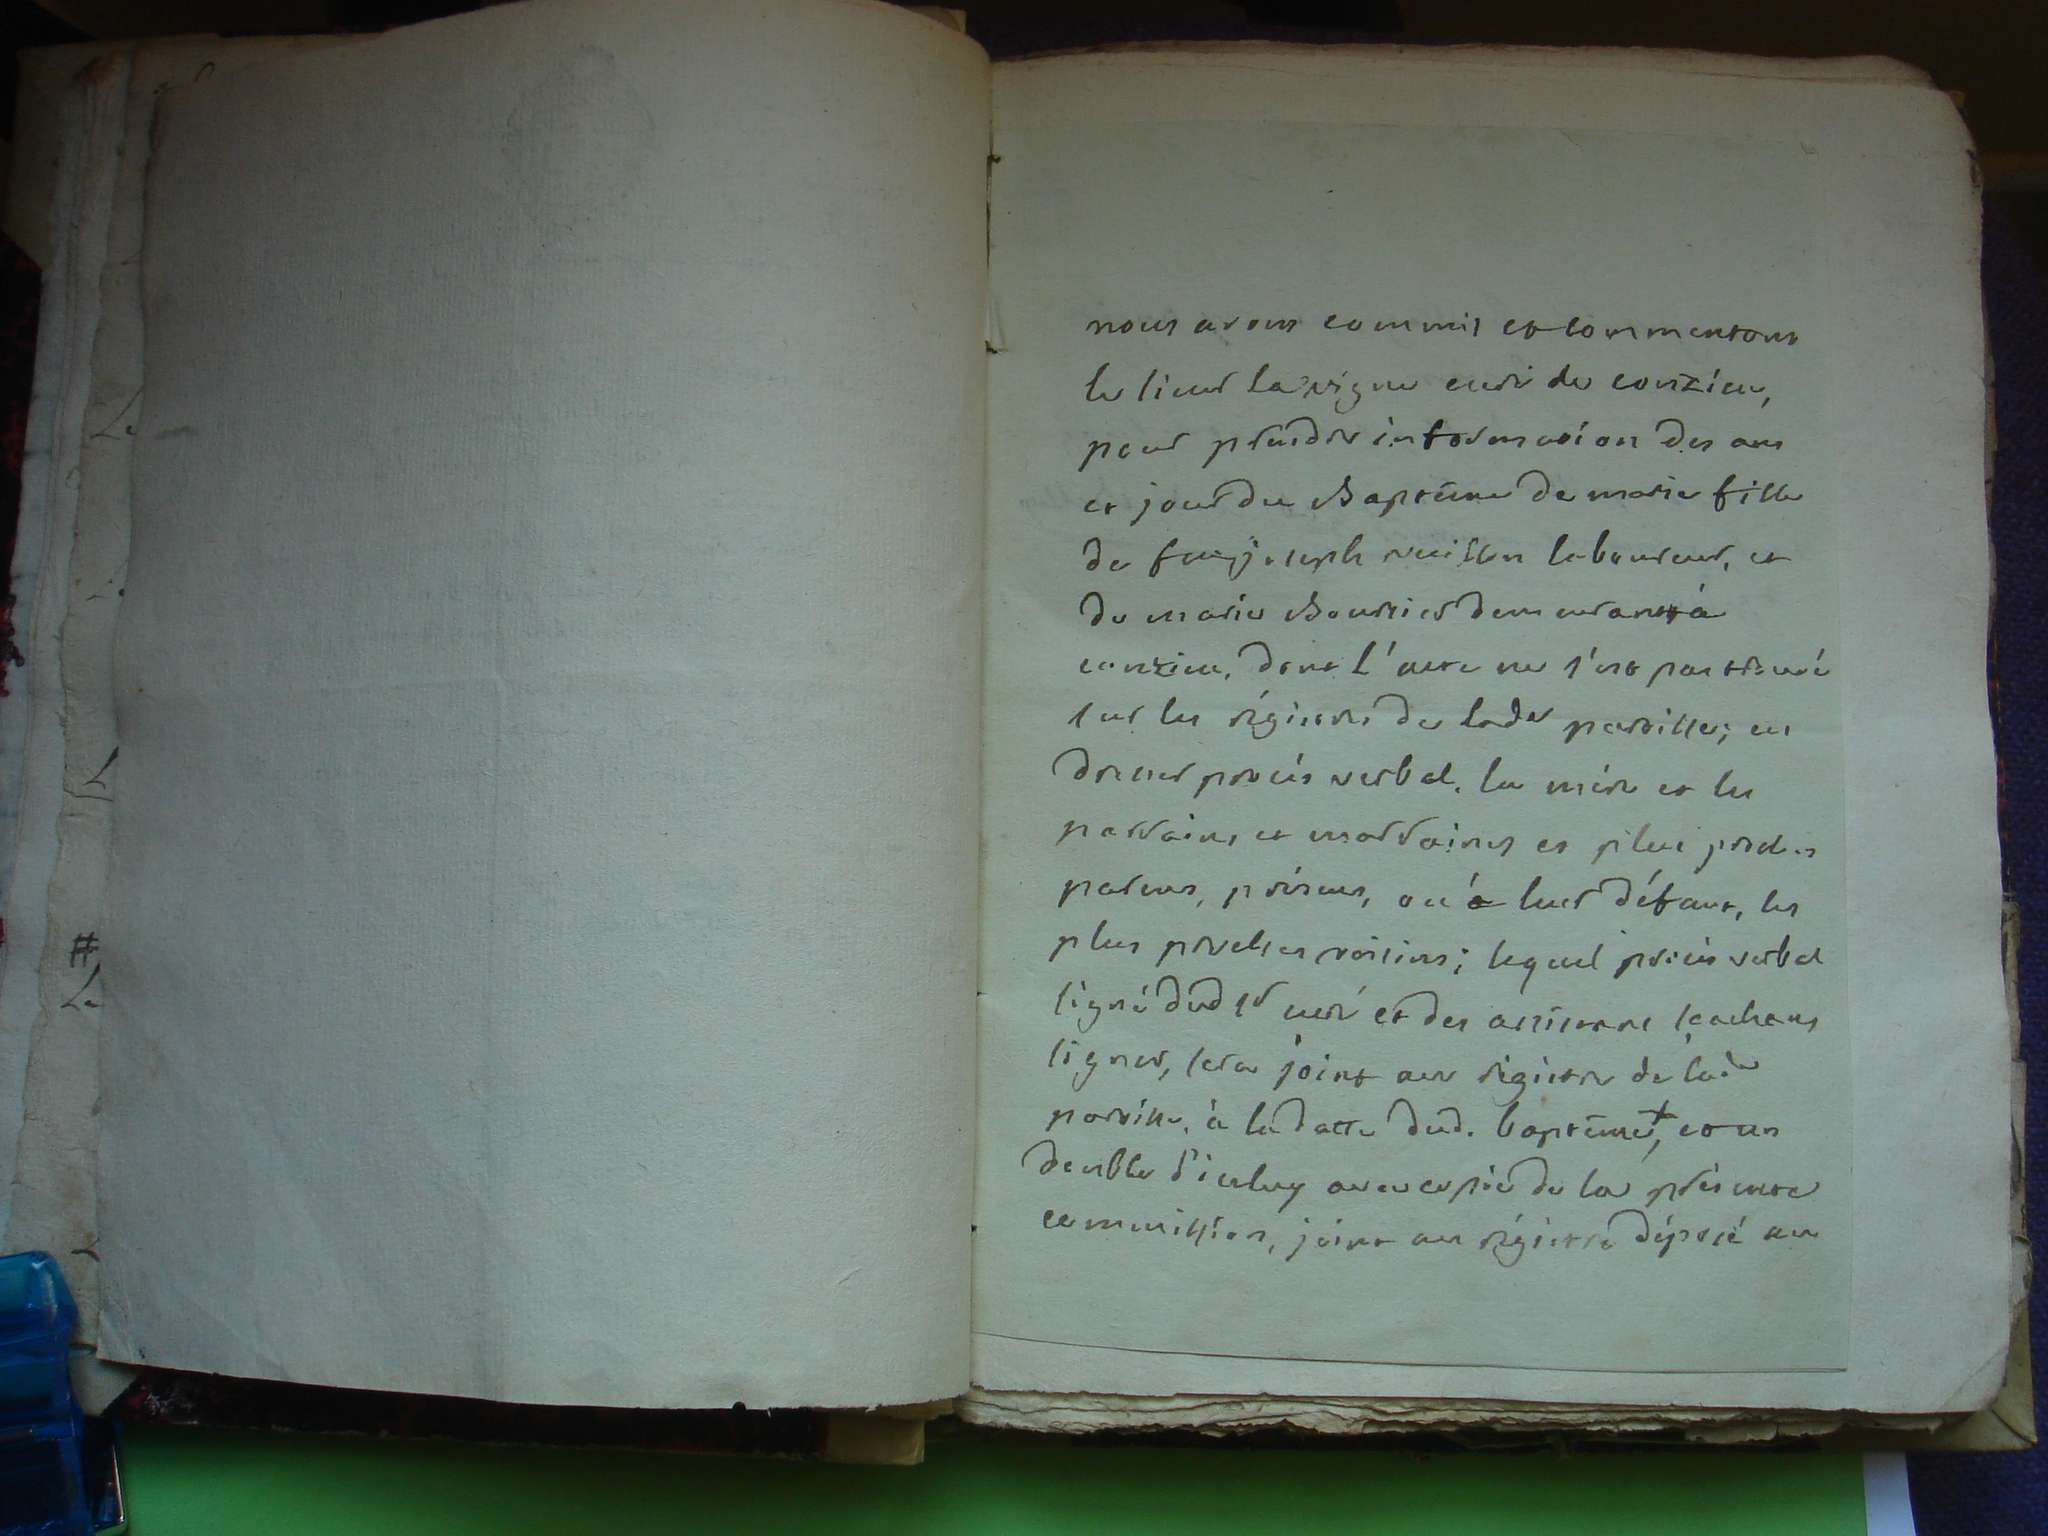 nous avons commis et commentons
le sieur la vigne curé de conzieu,
pour prendre information des ans
et jour du Baptême de marie fille
de feu joseph vuillen laboureur, et
de marie Bourrier demeurant à
conzieu, dont l'acte ne s'est pas trouvé
sur les régistres de lade paroisse; en
dresser procés verbal, la mére et les
parrains et marraines et plus proches
parens, présens, ou à leur défaut, les
plus proches voisins; lequel procés verbal
signé dud sr curé et des assistans sachans
signer, sera joint au régistre de lade
paroisse, à la datte dud. baptême, et un
double d'iceluy avec copie de la présente
commission, joint au régistre déposé au
Le
L
#
Le